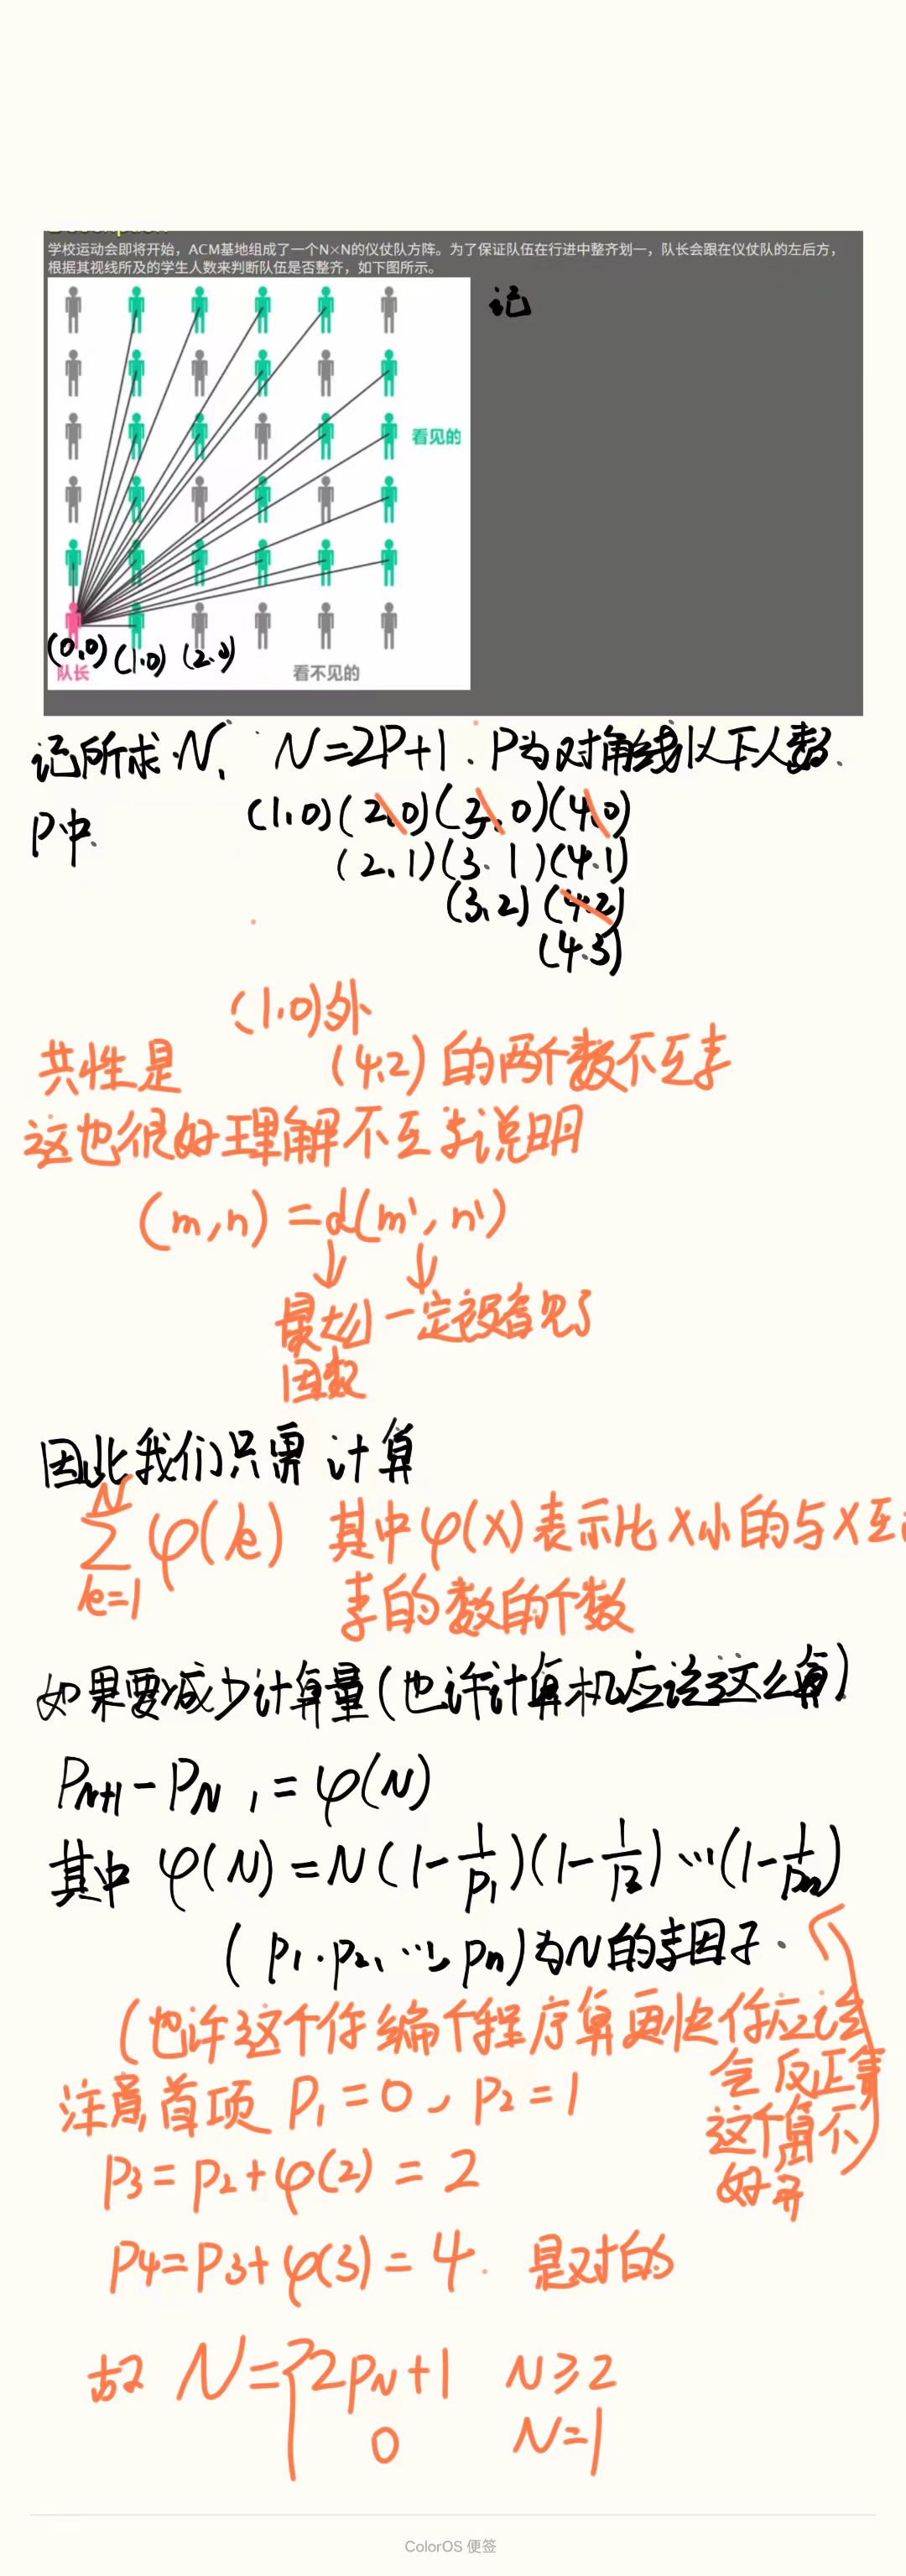 学校运动会即将开始，ACM基地组成了一个N×N的仪仗队方阵。为了保证队伍在行进中整齐划一，队长会跟在仪仗队的左后方，
根据其视线所及的学生人数来判断队伍是否整齐，如下图所示。
记
看见的
(0.0) (1.0) (2.0)
队长 看不见的
记所求N. N=2P+1. P为对角线以下人数.
P中. (1,0)(2,0)(3,0)(4,0)
(2.1)(3.1)(4.1)
(3,2)(4.2)
(4.3)
(1.0)外
共性是 (4,2)的两个数不互素
这也很好理解不互素说明
(m,n)=d(m',n')
最大 一定被看见了
因数
因此我们只需计算
N
∑ φ(k) 其中φ(X)表示比X小的与X互
k=1 素的数的个数
如果要减少计算量(也许计算机应该这么算)
P_{N+1}-P_N,=φ(N)
其中 φ(N)=N(1-1/p₁)(1-1/p₂)…(1-1/pₙ)
(p₁.p₂,…,pn)为N的素因子.
(也许这个你编个程序算更快你应该
会 反正
注意首项 P₁=0, p₂=1
这个算不
p₃=p₂+φ(2)=2
好弄
P4=P3+φ(3)=4. 是对的
故 N={2p_N+1 N≥2
0 N=1
ColorOS 便签